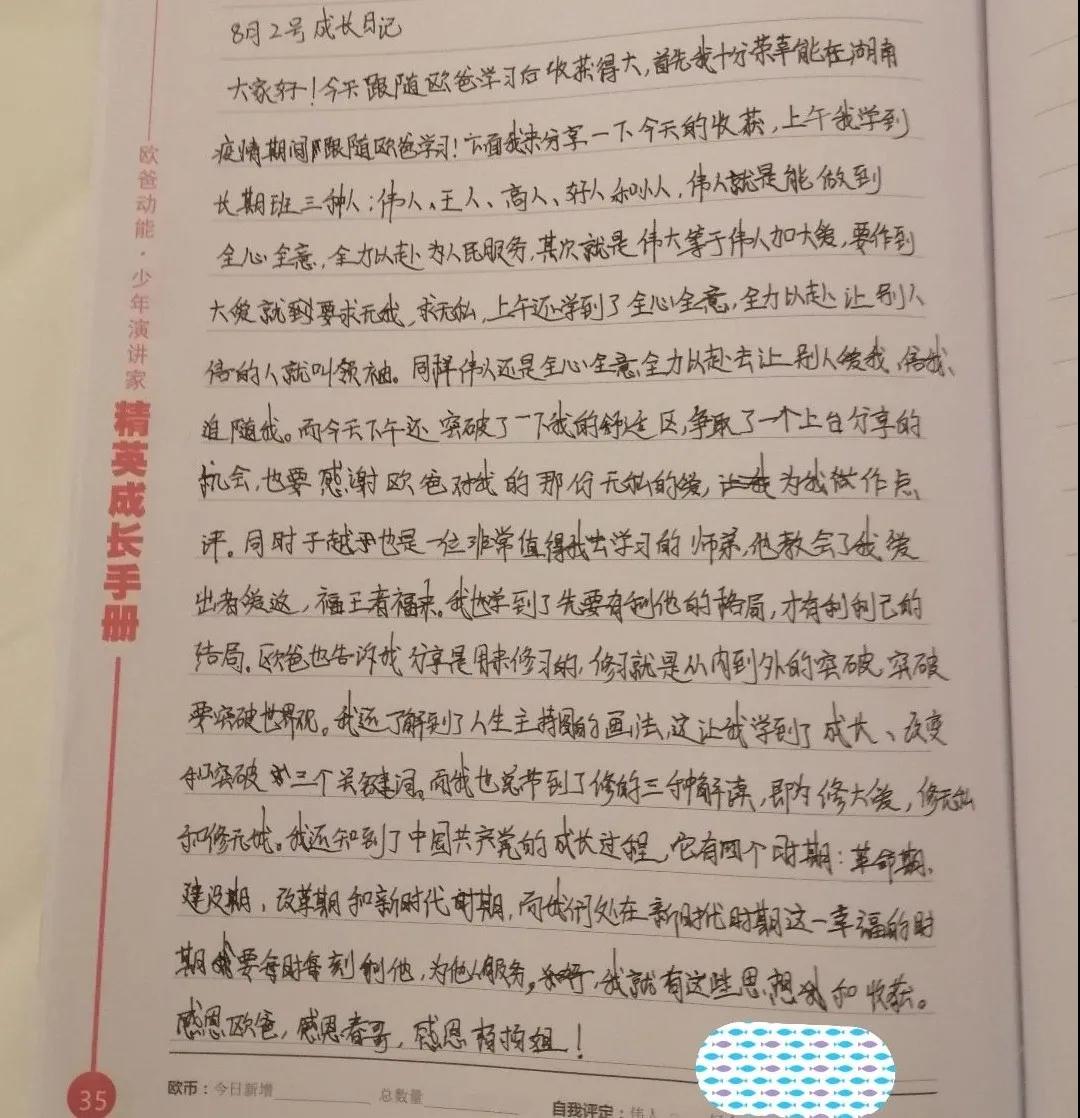 8月2号成长日记
大家好！今天跟随欧爸学习后收获得大，首先我十分荣幸能在湖南
疫情期间跟随欧爸学习！下面我来分享一下今天的收获，上午我学到
长期班三种人：伟人、王人、高人、好人和小人，伟人就是能做到
全心全意，全力以赴为人民服务，其次就是伟大等于伟人加大爱，要作到
大爱就到要求无我，求无私，上午还学到了全心全意，全力以赴让别人
信的人就叫领袖。同样伟人还是全心全意全力以赴去让别人爱我、信我、
追随我。而今天下午还突破了一下我的舒适区，争取了一个上台分享的
机会，也要感谢欧爸对我的那份无私的爱，为我做作点
评。同时于越也是一位非常值得我去学习的师弟，他教会了我爱
出者爱返，福王者福来。我也学到了先要有利他的格局，才有利利己的
结局。欧爸也告诉我分享是用来修习的，修习就是从内到外的突破，突破
要突破世界观。我还了解到了人生主持图的画法，这让我学到了成长、改变
和突破三个关键词。而我也总带到了修的三种解读，即为修大爱，修无私
和修无我。我还知到了中国共产党的成长过程，它有四个时期：革命期、
建设期、改革期和新时代时期，而我们处在新时代时期这一幸福的时
期要每时每刻利他，为他人服务。我就有这些思想和收获。
感恩欧爸，感恩春哥，感恩杨杨姐！
欧爸动能·少年演讲家
精英成长手册
35
欧币：今日新增 总数量
自我评定：伟人